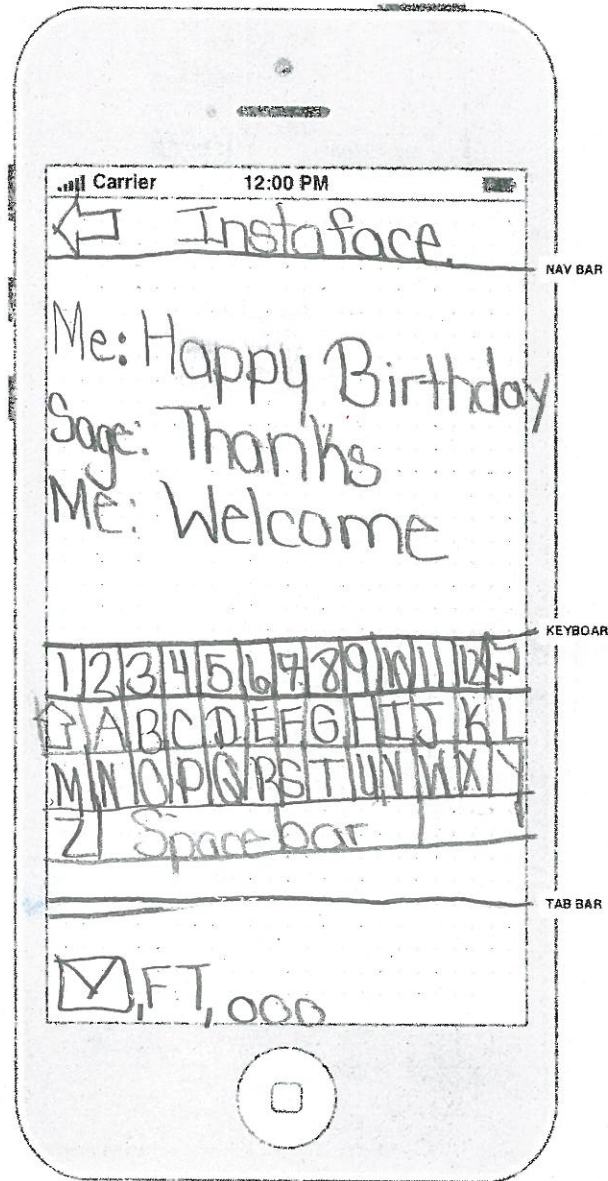 Carrier 12:00 PM
Instaface
NAV BAR
Me: Happy Birthday
Sage: Thanks
Me: Welcome
KEYBOAR
1 2 3 4 5 6 7 8 9 10 11 12
A B C D E F G H I J K L
M N O P Q R S T U V W X Y
Z Spacebar
TAB BAR
,FT, ooo